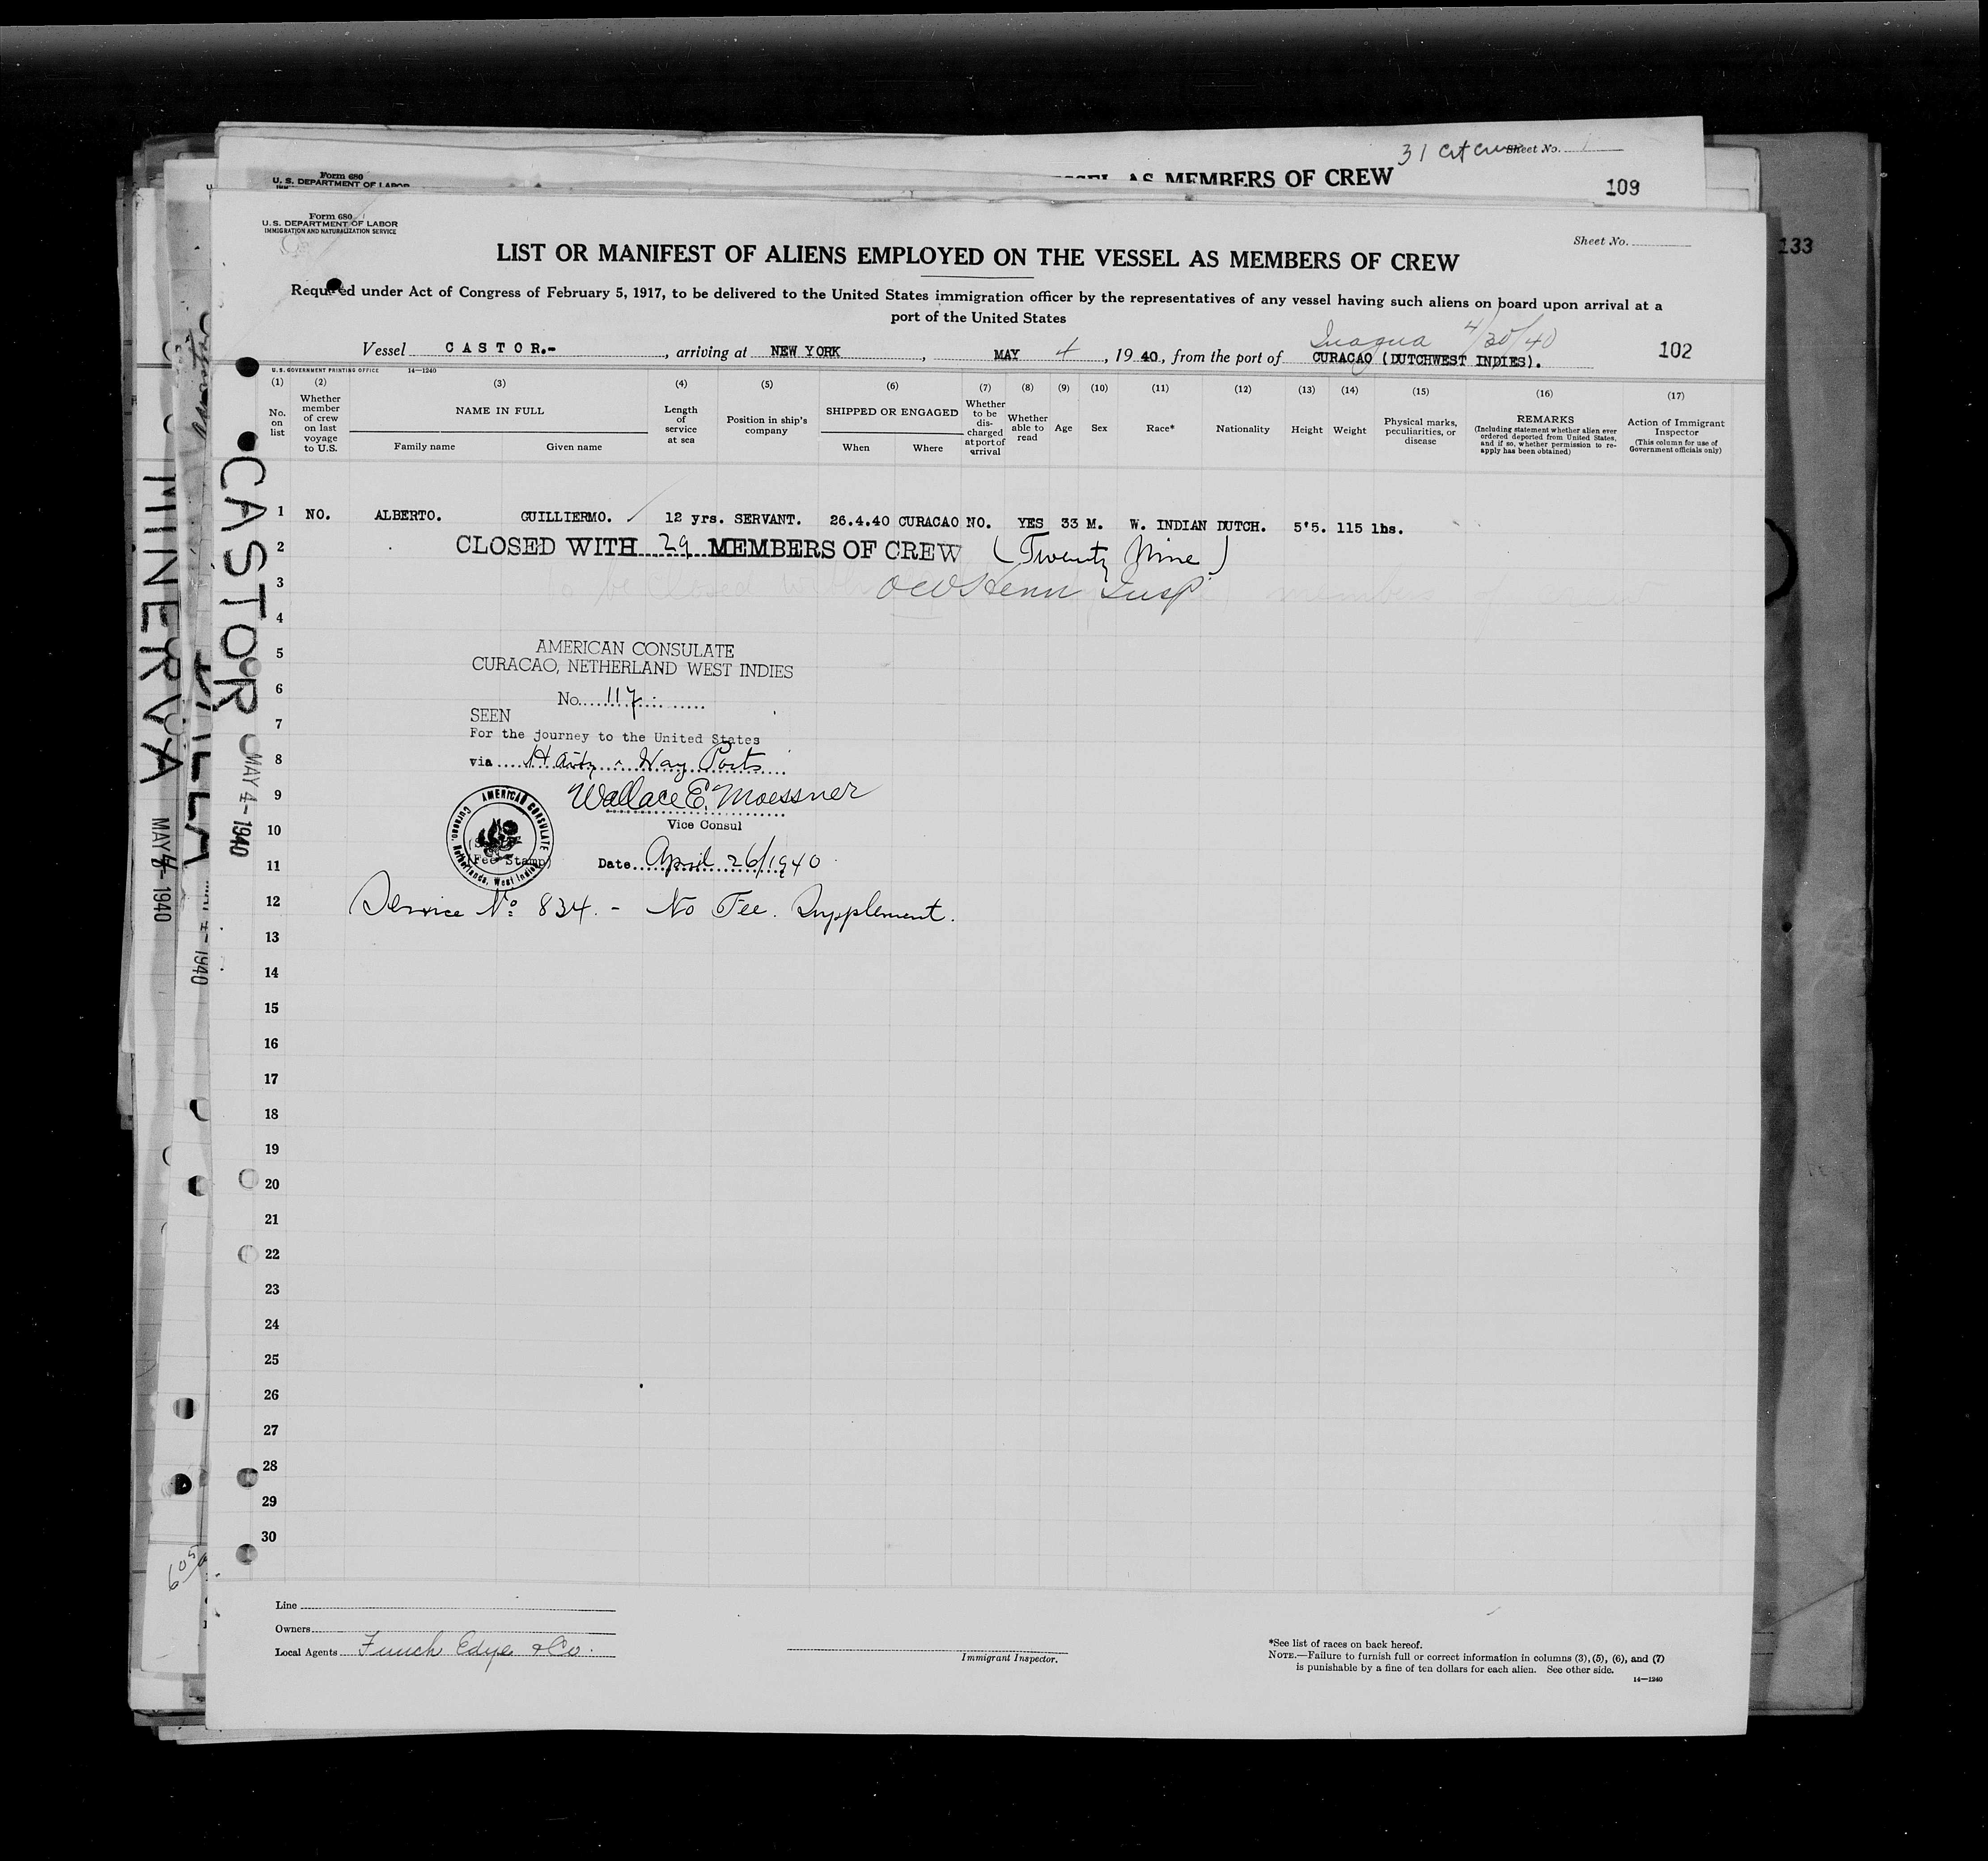 31 Sheet No.
Form 680
U. S. DEPARTMENT OF LABOR
AS MEMBERS OF CREW
109
133
Form 680
U. S. DEPARTMENT OF LABOR
IMMIGRATION AND NATURALIZATION SERVICE
Sheet No.
LIST OR MANIFEST OF ALIENS EMPLOYED ON THE VESSEL AS MEMBERS OF CREW
Required under Act of Congress of February 5, 1917, to be delivered to the United States immigration officer by the representatives of any vessel having such aliens on board upon arrival at a
port of the United States
Inagua 4/30/40
Vessel CASTOR.- , arriving at NEW YORK , MAY 4 , 19 40, from the port of CURACAO (DUTCHWEST INDIES).
102
U. S. GOVERNMENT PRINTING OFFICE 14—1240
(1) (2) (3) (4) (5) (6) (7) (8) (9) (10) (11) (12) (13) (14) (15) (16) (17)
No. on list
Whether member of crew on last voyage to U.S.
NAME IN FULL
Family name Given name
Length of service at sea
Position in ship's company
SHIPPED OR ENGAGED
When Where
Whether to be discharged at port of arrival
Whether able to read
Age
Sex
Race*
Nationality
Height
Weight
Physical marks, peculiarities, or disease
REMARKS
(Including statement whether alien ever ordered deported from United States, and if so, whether permission to re-apply has been obtained)
Action of Immigrant Inspector
(This column for use of Government officials only)
1 NO. ALBERTO. GUILLIERMO. 12 yrs. SERVANT. 26.4.40 CURACAO NO. YES 33 M. W. INDIAN DUTCH. 5'5. 115 lbs.
2 CLOSED WITH 29 MEMBERS OF CREW (Twenty Nine)
3 Insp
4
5 AMERICAN CONSULATE
CURACAO, NETHERLAND WEST INDIES
6 No. 117
7 SEEN
For the journey to the United States
8 via Haiti & Way Ports
9 Wallace E. Moessner
10 Vice Consul
AMERICAN CONSULATE
Curacao, Netherlands, West Indies
(Fee Stamp)
11 Date April 26/1940
12 Service No 834. - No Fee. Supplement.
13
14
15
16
17
18
19
20
21
22
23
24
25
26
27
28
29
30
Line
Owners
Local Agents Funch Edye & Co.
Immigrant Inspector.
*See list of races on back hereof.
NOTE.—Failure to furnish full or correct information in columns (3), (5), (6), and (7)
is punishable by a fine of ten dollars for each alien. See other side.
14—1240
CASTOR MAY 4- 1940
MINERVA MAY 4- 1940
1940
605